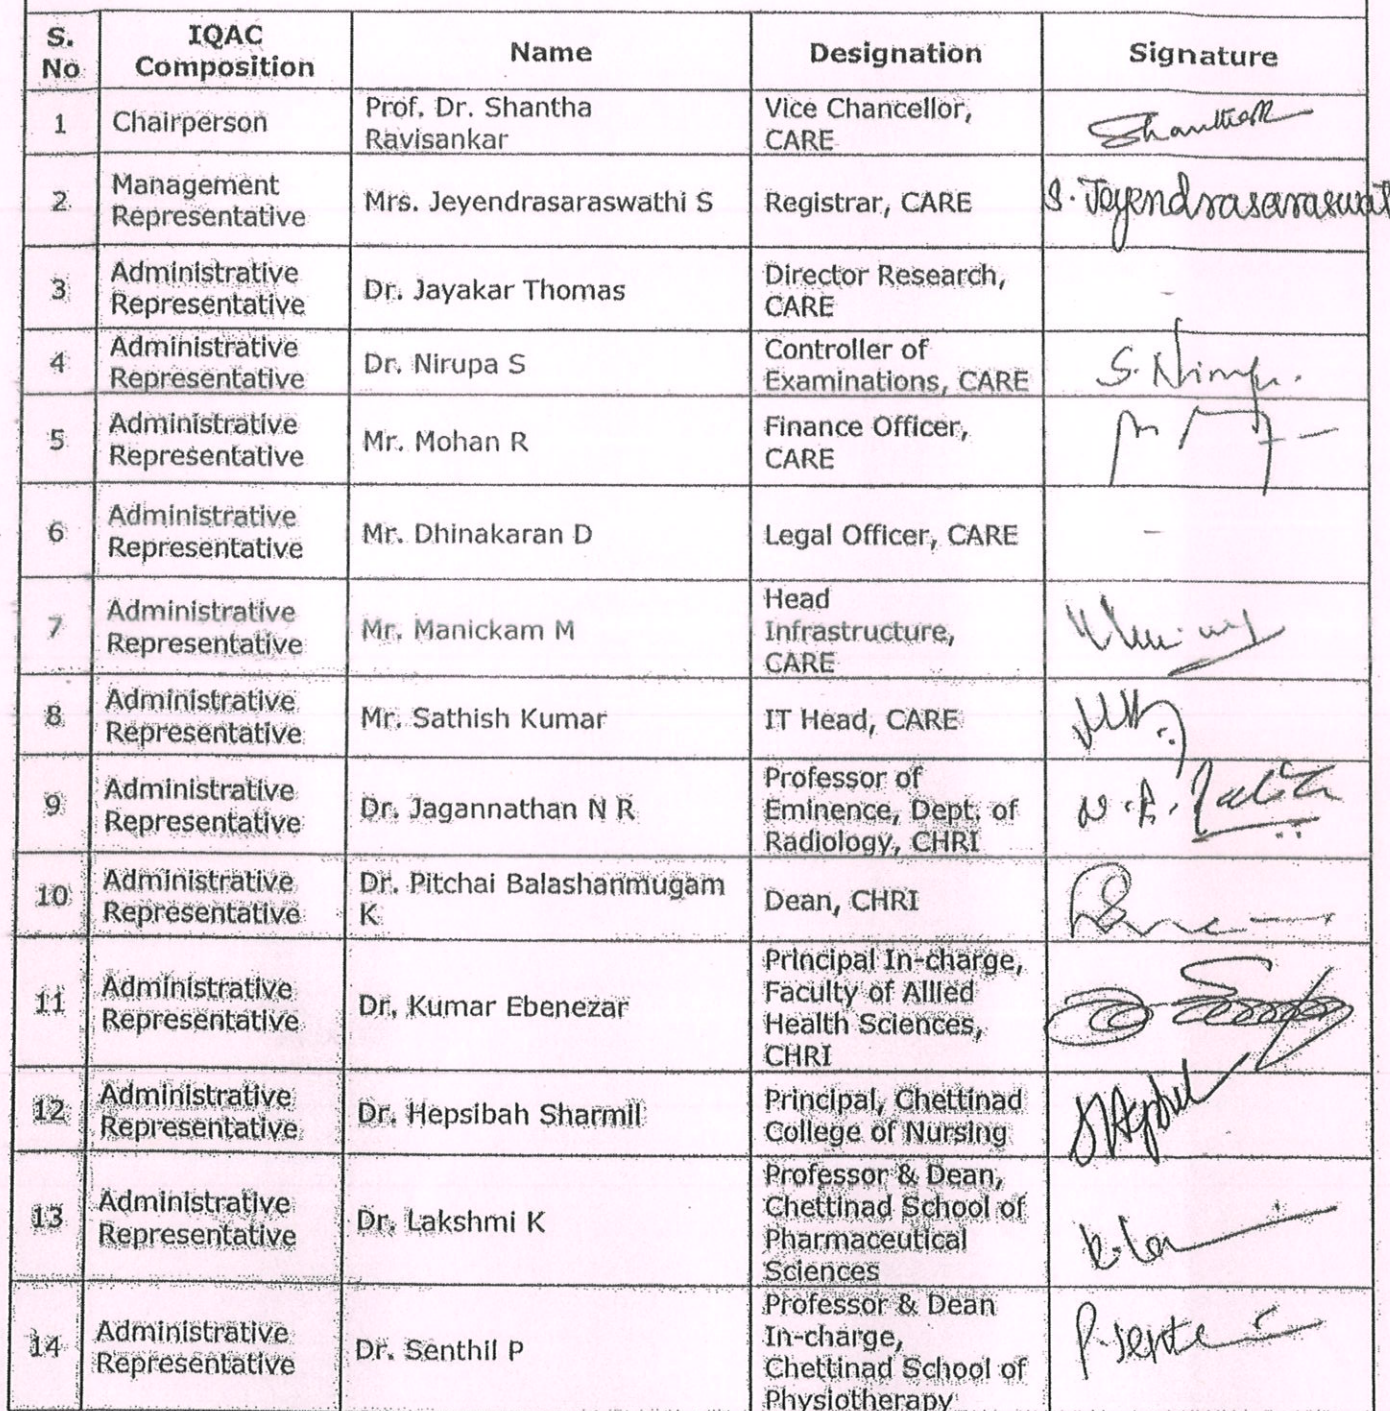 S. No
IQAC Composition
Name
Designation
Signature
1
Chairperson
Prof. Dr. Shantha
Ravisankar
Vice Chancellor,
CARE
2
Management
Representative
Mrs. Jeyendrasaraswathi S
Registrar, CARE
S. Jeyendrasaraswat
3
Administrative
Representative
Dr. Jayakar Thomas
Director Research,
CARE
-
4
Administrative
Representative
Dr. Nirupa S
Controller of
Examinations, CARE
5
Administrative
Representative
Mr. Mohan R
Finance Officer,
CARE
6
Administrative
Representative
Mr. Dhinakaran D
Legal Officer, CARE
-
7
Administrative
Representative
Mr. Manickam M
Head
Infrastructure,
CARE
8
Administrative
Representative
Mr. Sathish Kumar
IT Head, CARE
9
Administrative
Representative
Dr. Jagannathan N R
Professor of
Eminence, Dept. of
Radiology, CHRI
10
Administrative
Representative
Dr. Pitchai Balashanmugam
K
Dean, CHRI
11
Administrative
Representative
Dr. Kumar Ebenezar
Principal In-charge,
Faculty of Allied
Health Sciences,
CHRI
12
Administrative
Representative
Dr. Hepsibah Sharmil
Principal, Chettinad
College of Nursing
13
Administrative
Representative
Dr. Lakshmi K
Professor & Dean,
Chettinad School of
Pharmaceutical
Sciences
14
Administrative
Representative
Dr. Senthil P
Professor & Dean
In-charge,
Chettinad School of
Physiotherapy